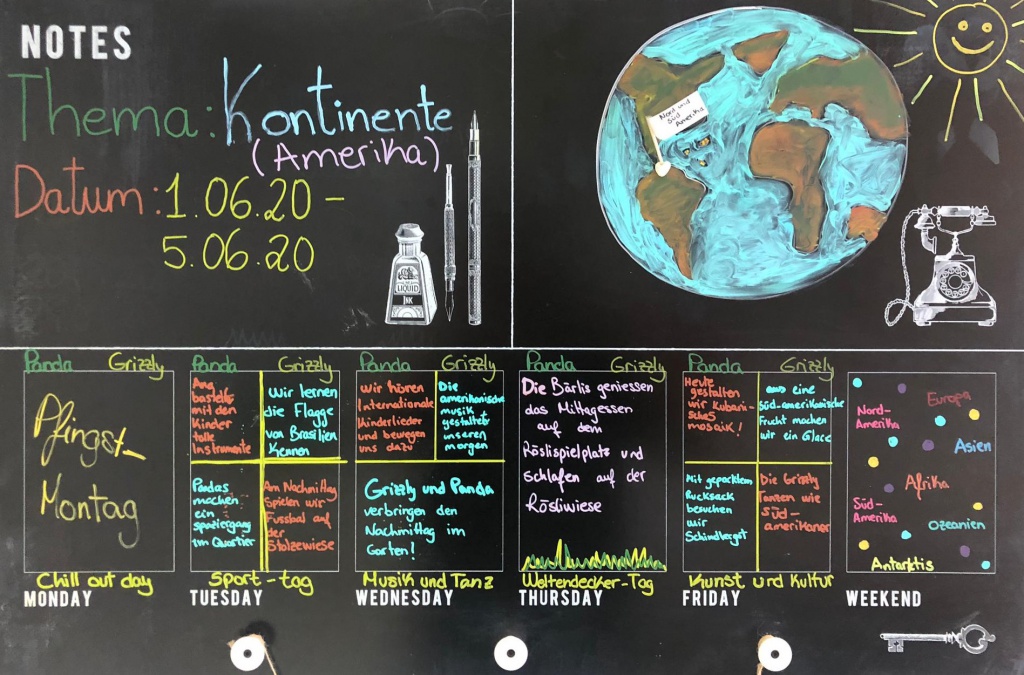 NOTES
Thema: Kontinente
(Amerika)
Datum: 1.06.20 -
5.06.20
Nord und
Süd
Amerika
LIQUID
INK
Panda Grizzly
Pfingst
Montag
Chill out day
MONDAY
Panda Grizzly
Ang
bastelt
mit den
Kinder
tolle
Instrumente
Wir lernen
die Flagge
von Brasilien
Kennen
Pandas
machen
ein
spaziergang
im Quartier
Am Nachmittag
Spielen wir
Fussball auf
der
Stolzewiese
Sport-tag
TUESDAY
Panda Grizzly
Wir hören
Internationale
Kinderlieder
und bewegen
uns dazu
Die
amerikanische
musik
gestaltet
unseren
morgen
Grizzly und Panda
verbringen den
Nachmittag im
Garten!
Musik und Tanz
WEDNESDAY
Panda Grizzly
Die Bärlis geniessen
das Mittagessen
auf dem
Röslispielplatz und
Schlafen auf der
Rösliwiese
Weltendecker-Tag
THURSDAY
Panda Grizzly
Heute
gestalten
wir Kubani-
sches
mosaik!
aus eine
Süd-amerikanische
Frucht machen
wir ein Glace
Mit gepacktem
Rucksack
besuchen
wir
Schindlergut
Die Grizzly
Tanzen wie
Süd-
amerikaner
Kunst und Kultur
FRIDAY
Europa
Nord-
Amerika
Asien
Afrika
Süd-
Amerika
Ozeanien
Antarktis
WEEKEND